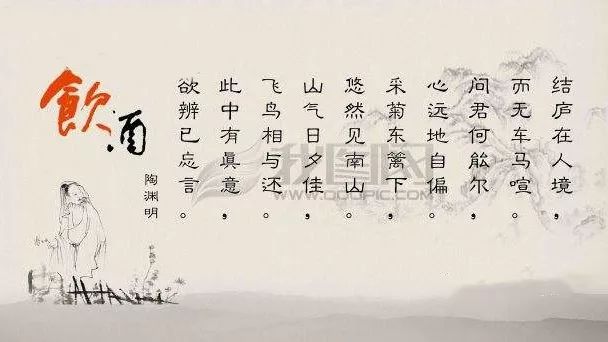 飲酒
陶渊明
结庐在人境，
而无车马喧。
问君何能尔，
心远地自偏。
采菊东篱下，
悠然见南山。
山气日夕佳，
飞鸟相与还。
此中有眞意，
欲辨已忘言。